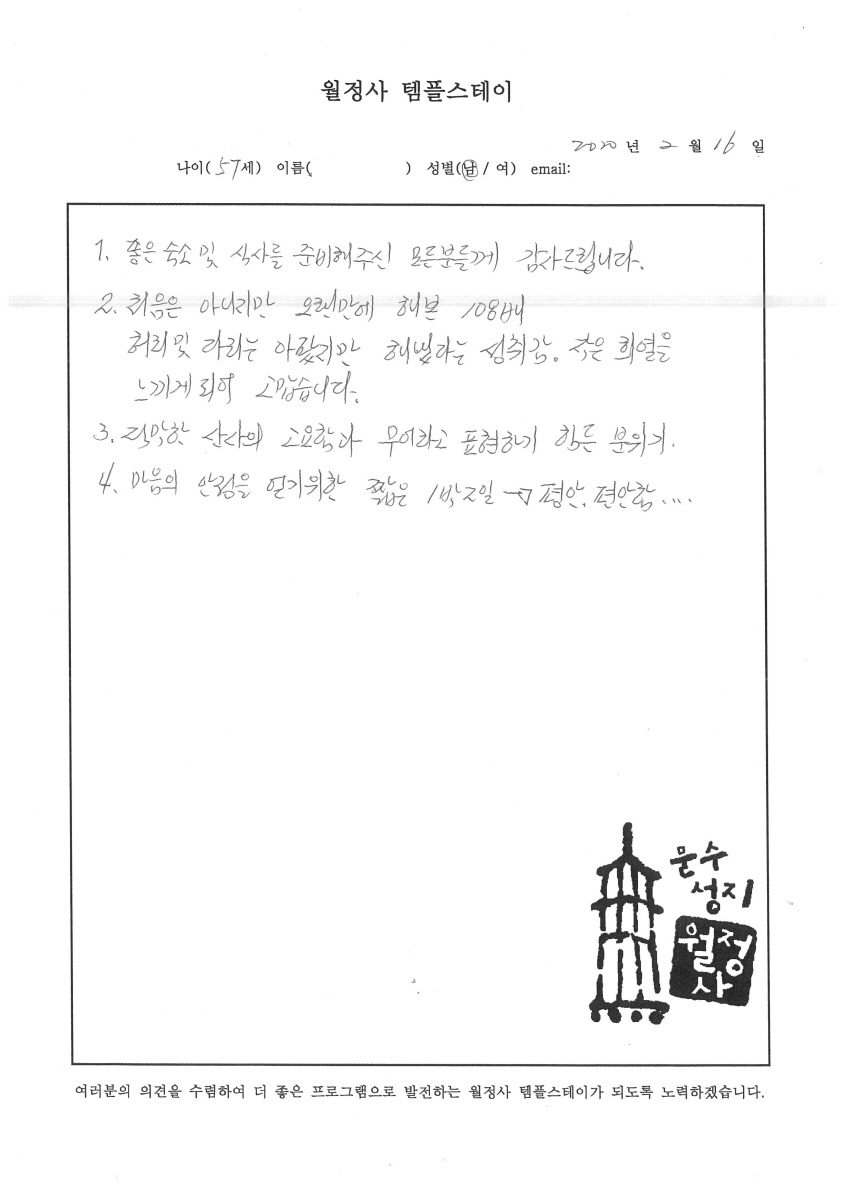 월정사 템플스테이
2020 년 2 월 16 일
나이( 57세) 이름( ) 성별(남 / 여) email:
1. 좋은 숙소 및 식사를 준비해주신 모든분들께 감사드립니다.
2. 처음은 아니지만 오랜만에 해본 108배
허리 및 다리는 아팠지만 해냈다는 성취감. 작은 희열을
느끼게 되어 고맙습니다.
3. 적막한 산사의 고요함과 무어라고 표현하기 힘든 분위기.
4. 마음의 안정을 얻기위한 짧은 1박2일 → 평안, 편안함....
문수
성지
월정
사
여러분의 의견을 수렴하여 더 좋은 프로그램으로 발전하는 월정사 템플스테이가 되도록 노력하겠습니다.